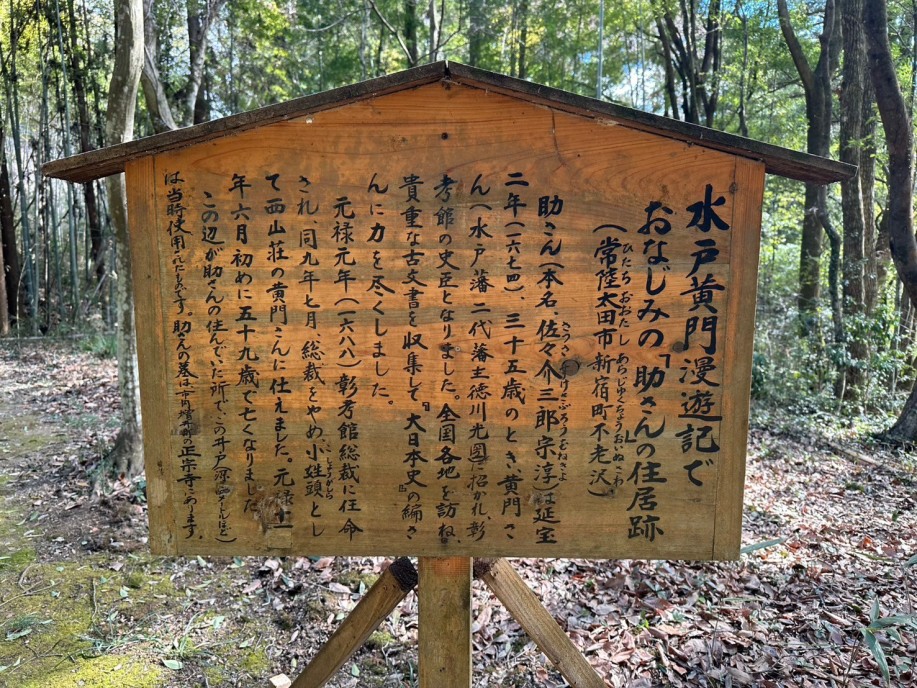 水戸黄門漫遊記で
おなじみの「助さん」の住居跡
(常陸太田市新宿町不老沢)
ひたちおおたしあらじゅくちょうおいぬさわ
助さん(本名、佐々介三郎宗淳)は延宝
さっさすけさぶろうむねきよ
二年(一六七四)、三十五歳のとき、黄門さ
ん(水戸藩二代藩主徳川光圀)に招かれ、彰
考館の史臣となりました。全国各地を訪ね
貴重な古文書を収集して、『大日本史』の編さ
んに力を尽くしました。
元禄元年(一六八八)彰考館総裁に任命
され同九年七月総裁をやめ、小姓頭とし
こしょうがしら
て西山荘の黄門さんに仕えました。元禄十一
年六月初めに五十九歳で亡くなりました。
この辺が助さんの住んでいた所で、この井戸
は当時使用したものです。助さんの墓は市内増井町の正宗寺にあります。